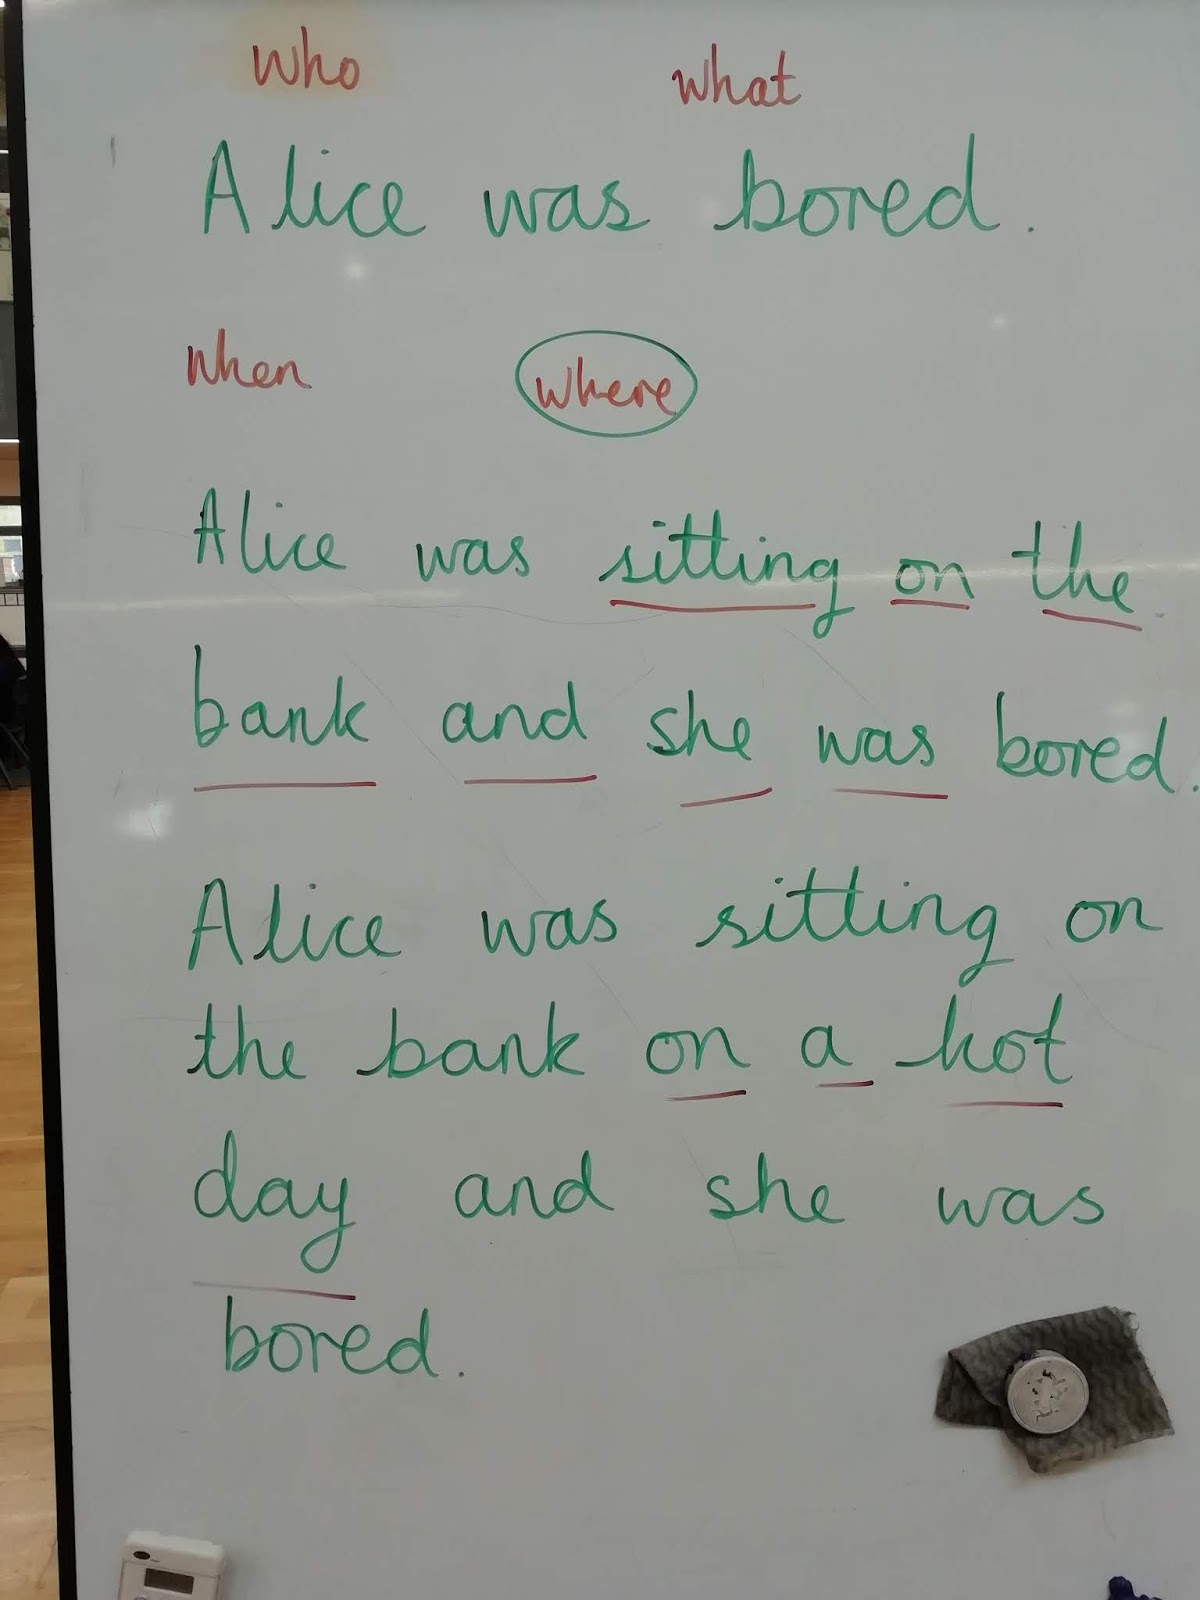 who what
Alice was bored.
when where
Alice was sitting on the
bank and she was bored.
Alice was sitting on
the bank on a hot
day and she was
bored.